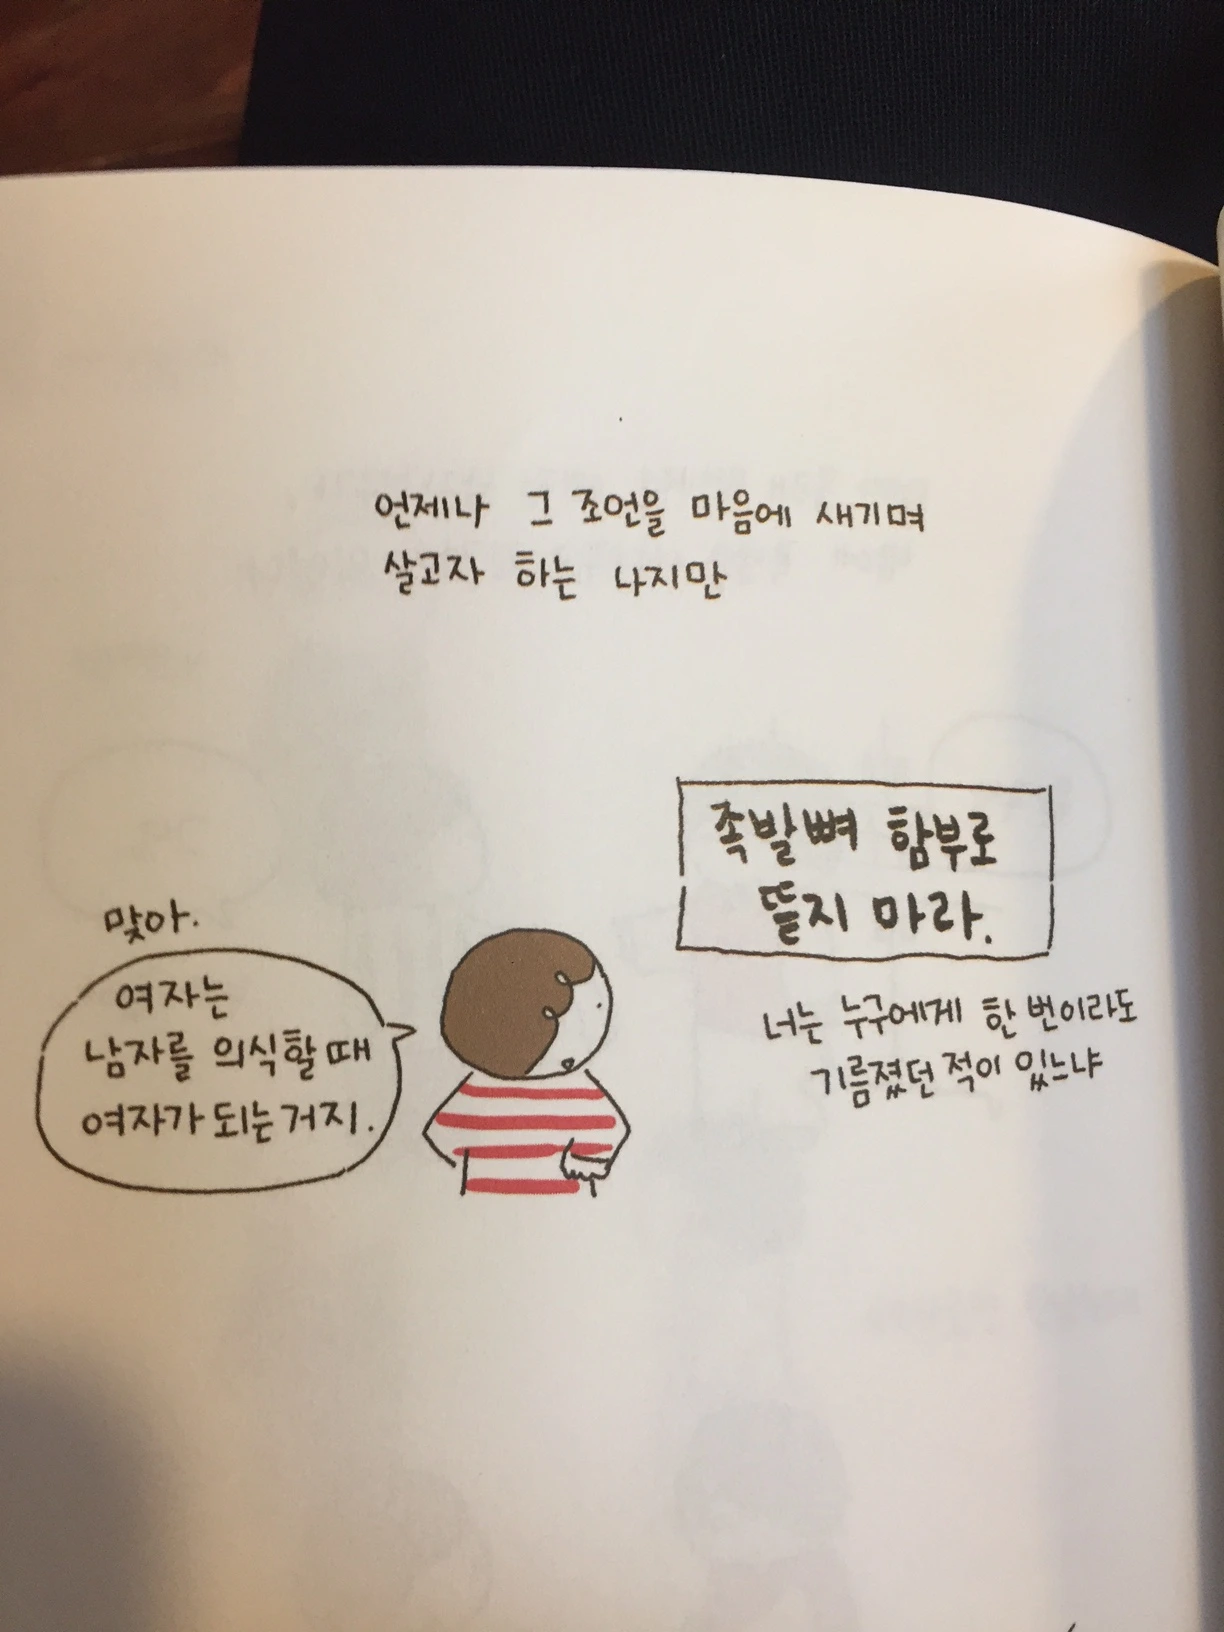 언제나 그 조언을 마음에 새기며
살고자 하는 나지만
맞아.
여자는
남자를 의식할 때
여자가 되는거지.
족발뼈 함부로
뜯지 마라.
너는 누구에게 한 번이라도
기름졌던 적이 있느냐